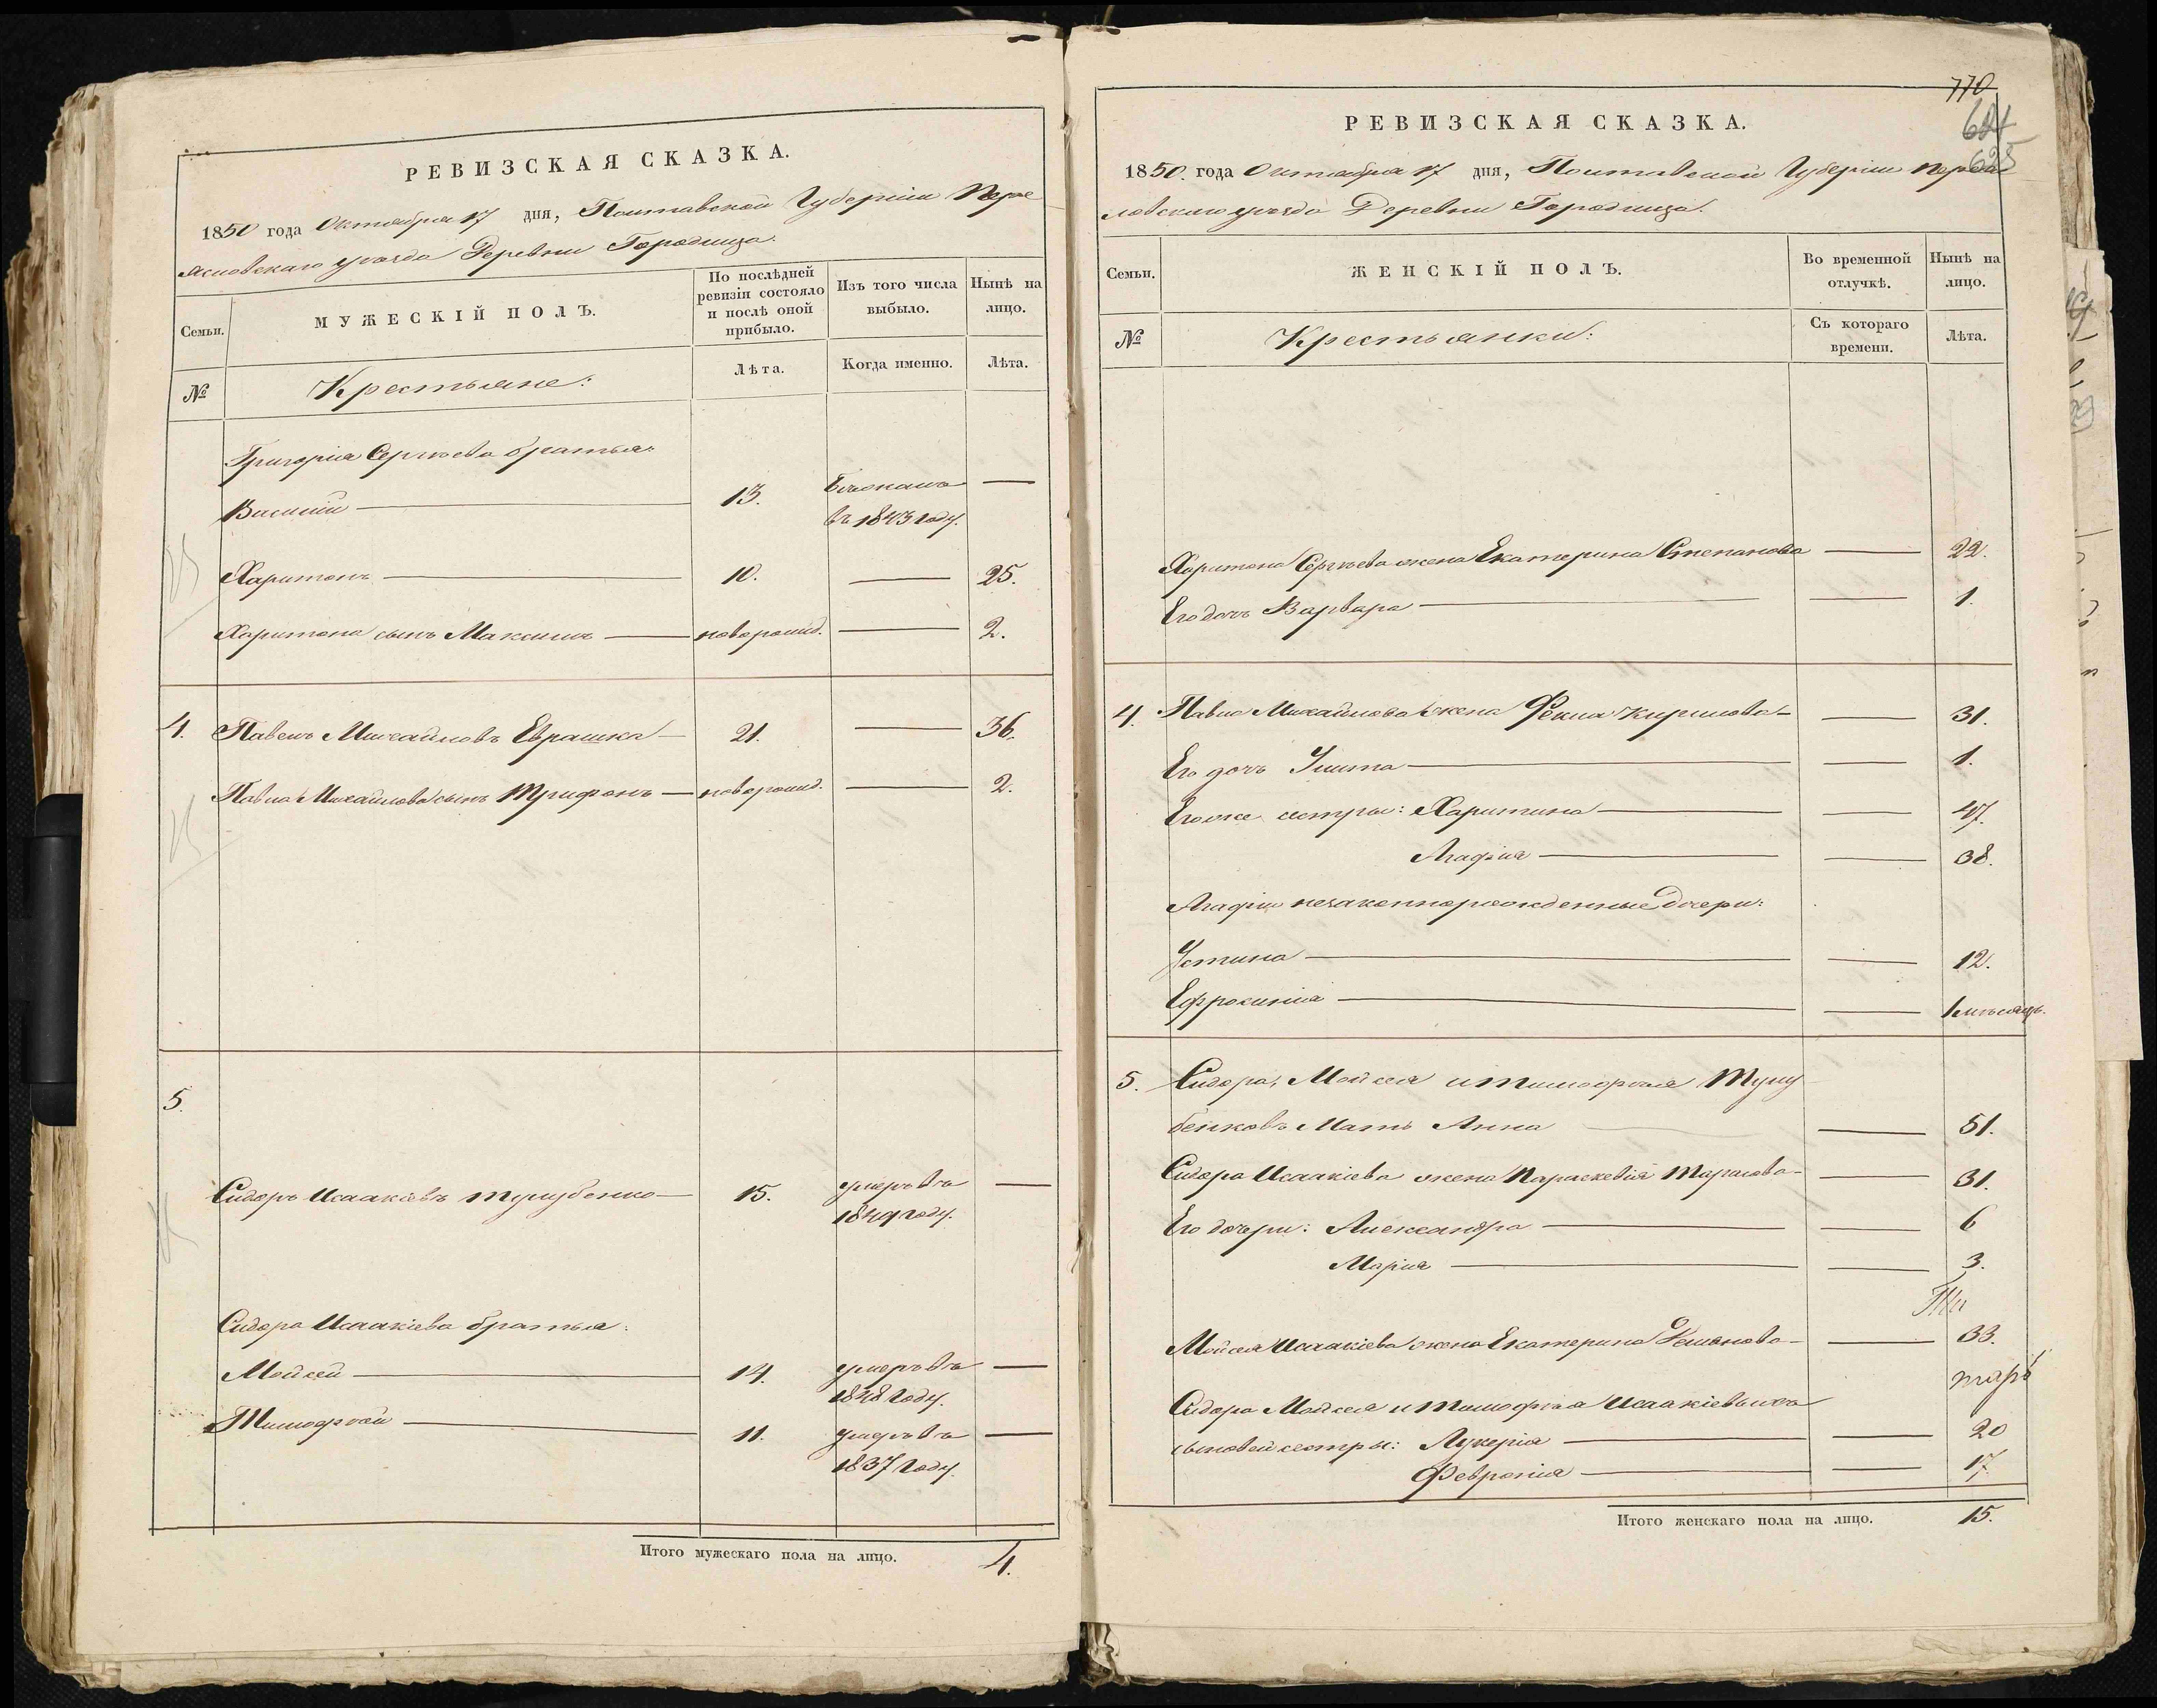 РЕВИЗСКАЯ СКАЗКА.
1850 года Октября 17 дня, Полтавской Губерніи Пере
яславскаго уѣзда Деревни Городища.
Семьи.
МУЖЕСКІЙ ПОЛЪ.
По послѣдней
ревизіи состояло
и послѣ оной
прибыло.
Изъ того числа
выбыло.
Нынѣ на
лицо.
№
Крестьяне:
Лѣта.
Когда именно.
Лѣта.
Григорія Сергѣева братья:
Василій — 13. Бѣжалъ —
въ 1843 году.
Харитонъ — 10. — 25.
Харитона сынъ Максимъ — новорожд. — 2.
4. Павелъ Михайловъ Еврашка — 21. — 36.
Павла Михайлова сынъ Трифонъ — новорожд. — 2.
5.
Сидоръ Исаакіевъ Тулубенко — 15. умеръ въ —
1849 году.
Сидора Исаакіева братья:
Мойсей — 14. умеръ въ —
1848 году.
Тимофѣй — 11. умеръ въ —
1837 году.
Итого мужескаго пола на лицо. 4.
770
624
625
РЕВИЗСКАЯ СКАЗКА.
1850. года Октября 17 дня, Полтавской Губерніи Переяс
лавскаго уѣзда Деревни Городища.
Семьи.
ЖЕНСКІЙ ПОЛЪ.
Во временной
отлучкѣ.
Нынѣ на
лицо.
№
Крестьянки:
Съ котораго
времени.
Лѣта.
Харитона Сергѣева жена Екатерина Степанова — 22.
Его дочь Варвара — — 1.
4. Павла Михайлова жена Фекла Кирилова — — 31.
Его дочь Улита — — 1.
Его же сестры: Харитина — — 47.
Агафія — — 38.
Агафіи незаконнорожденные дочери:
Устина — — 12.
Ефросинія — — 1 мѣсяцъ.
5. Сидора, Мойсея и Тимофѣя Тулу
бенковъ Мать Анна — 51.
Сидора Исаакіева жена Параскевія Тарасова — — 31.
Его дочери: Александра — — 6
Марія — — 3.
Мойсея Исаакіева жена Екатерина Демянова — — 33.
Сидора Мойсея и Тимофѣя Исаакіевыхъ
сыновей сестры: Лукерія — — 20
Февронія — — 17.
Итого женскаго пола на лицо. 15.